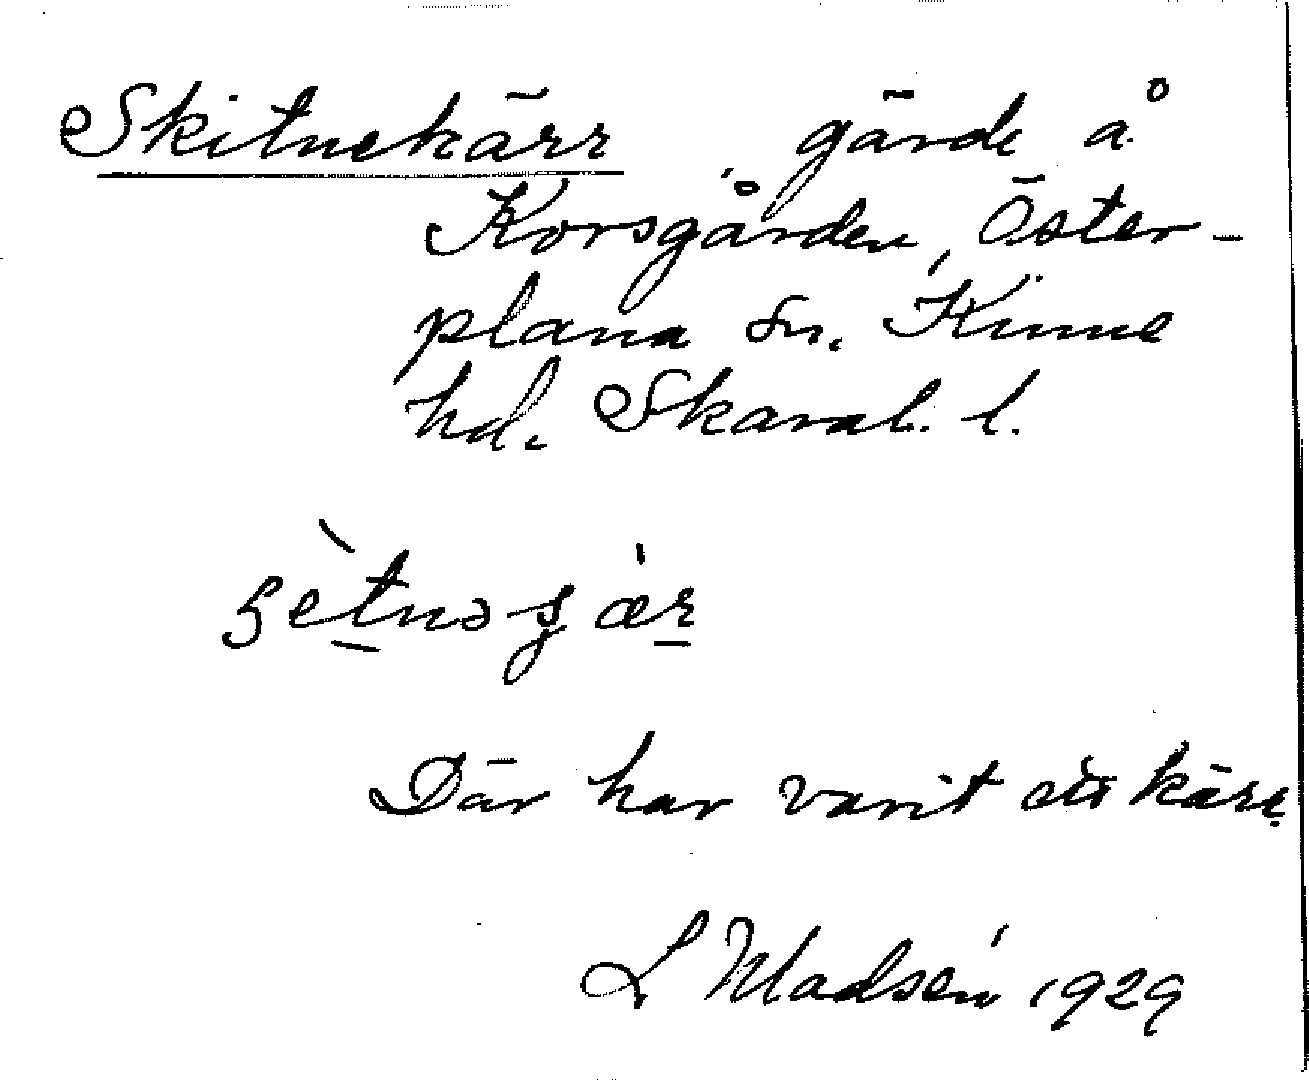 Skitnekärr gärde å
Korsgården, Öster-
plana sn. Kinne
hd. Skarab. l.
Där har varit ett kärr.
L Madsén 1929